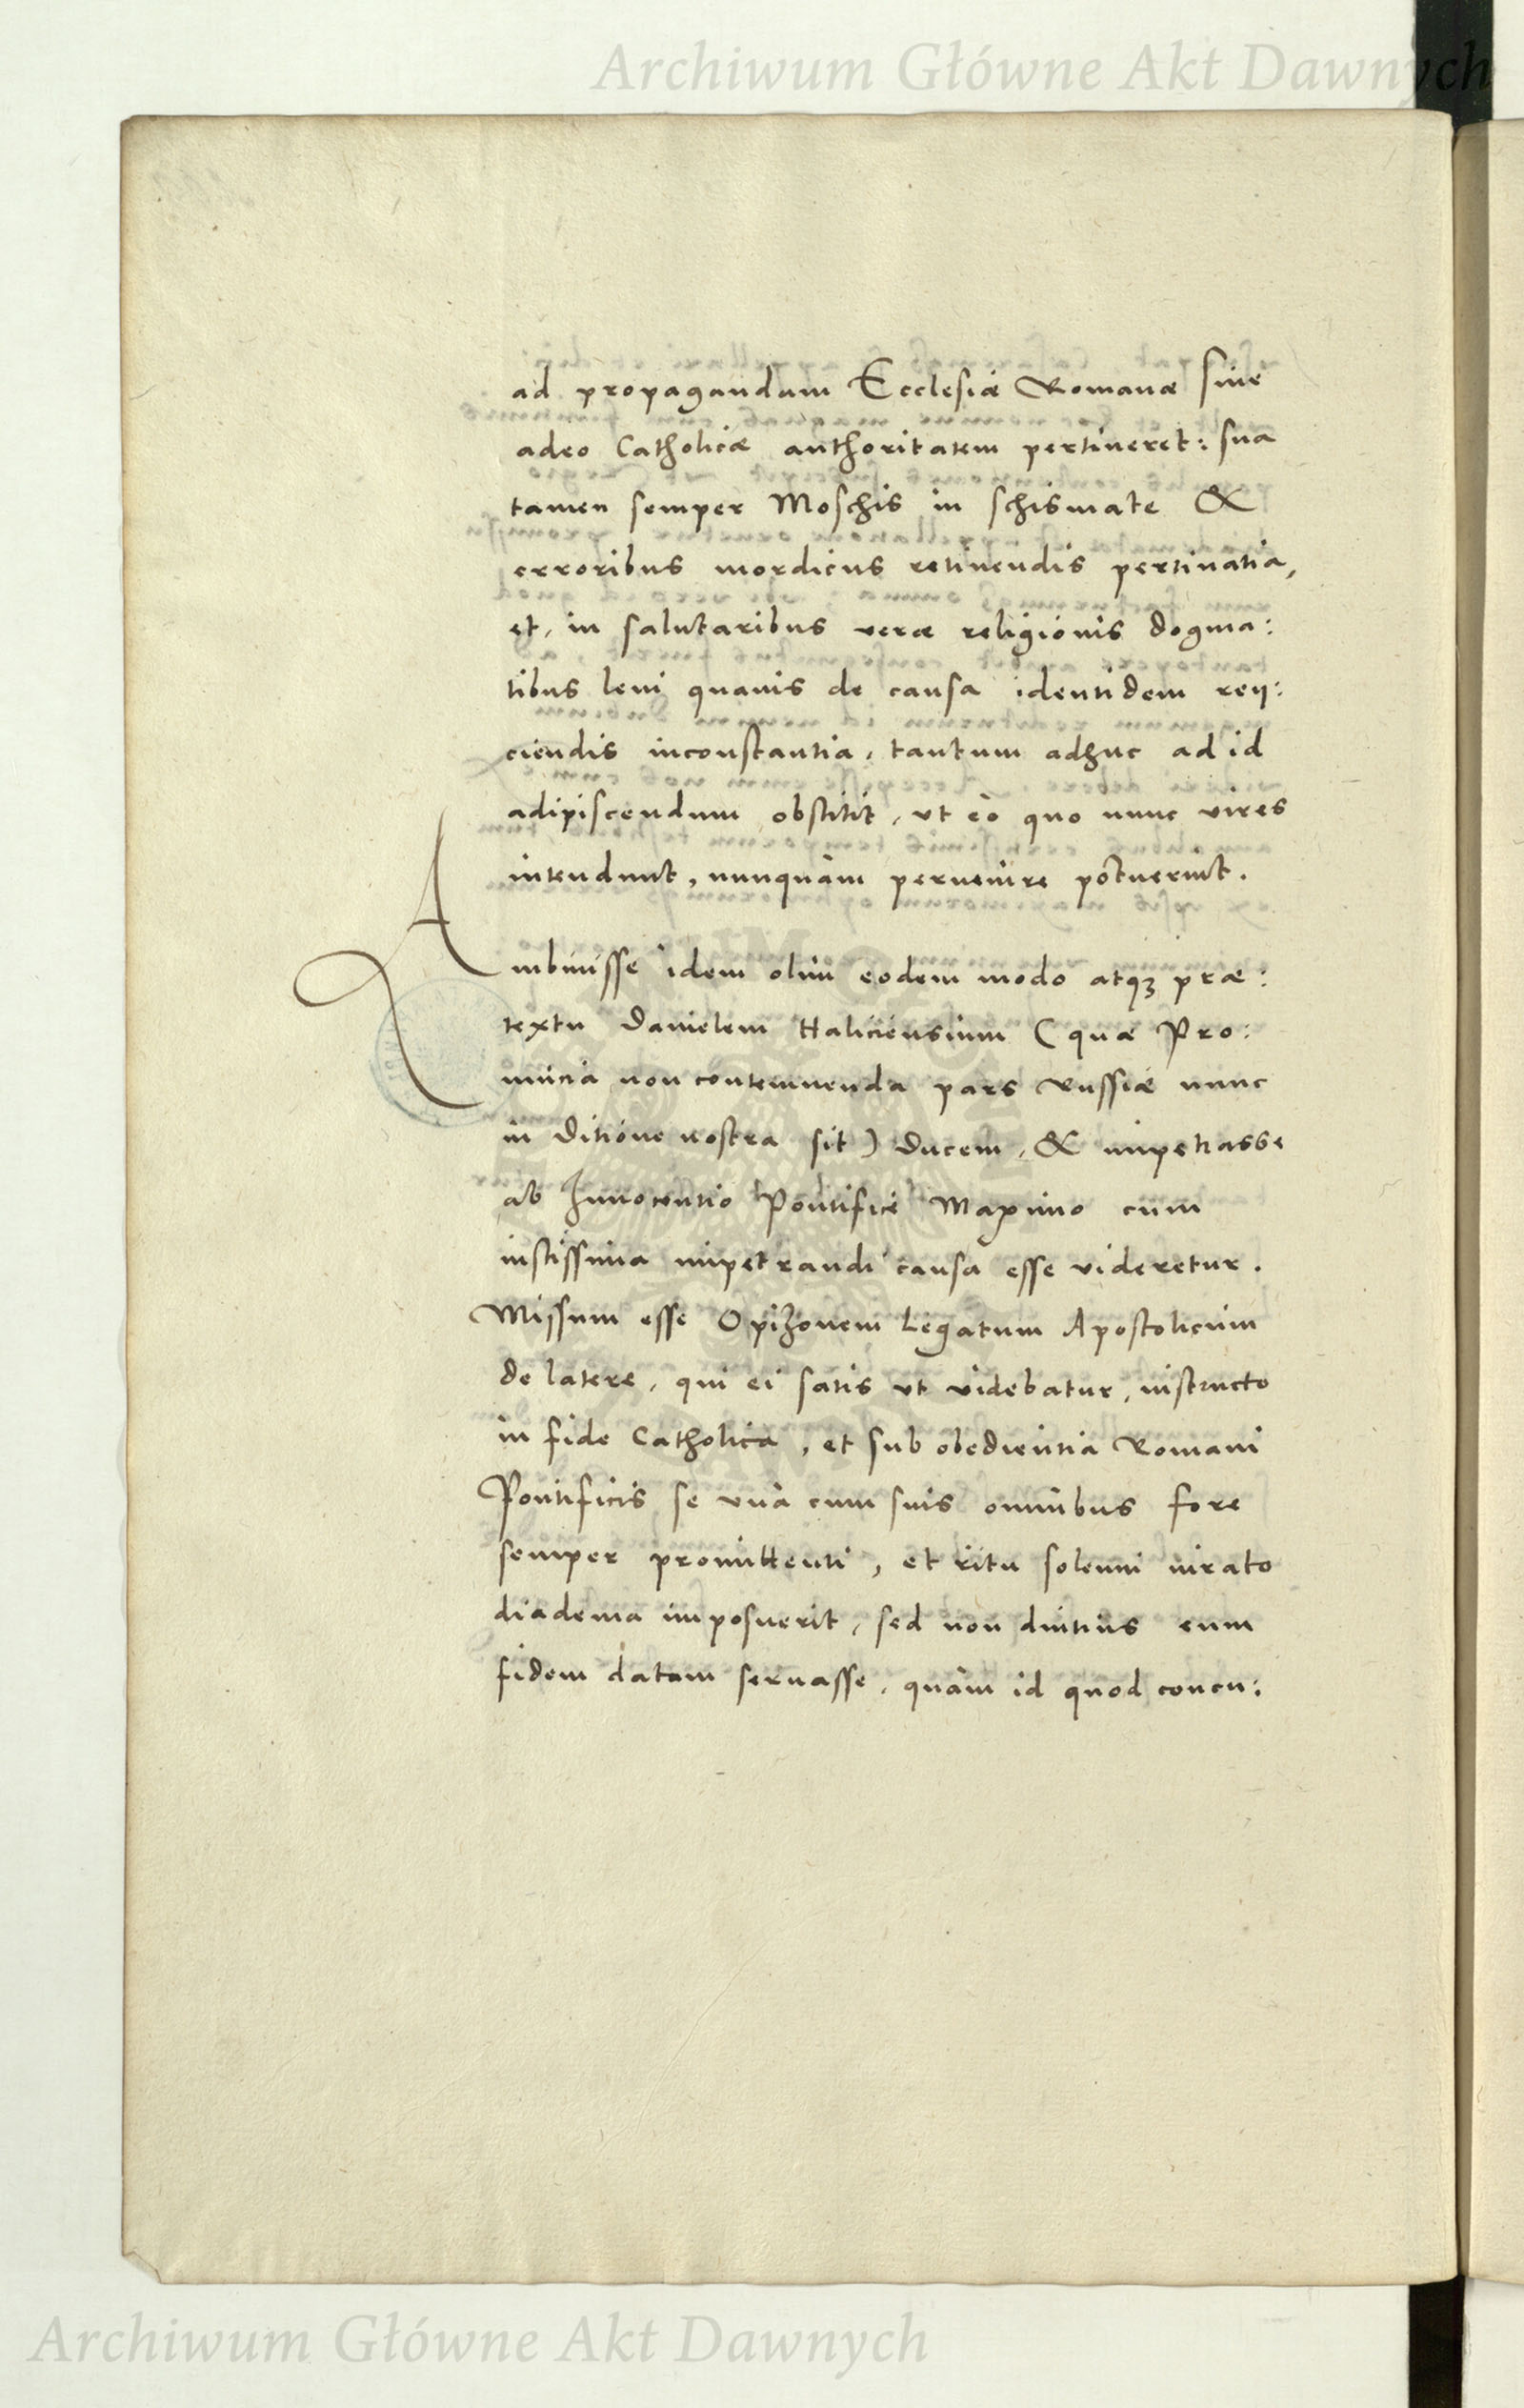 Archiwum Główne Akt Dawnych
ad propagandam Ecclesiæ Romanæ siue
adeo Catholicæ authoritatem pertineret: sua
tamen semper Moschis in schismate &
erroribus mordicus retinendis pertinatia,
et, in salutaribus veræ religionis dogma:
tibus leui quauis de causa identidem reij:
ciendis inconstantia, tantum adhuc ad id
adipiscendum obstitit, vt eò quo nunc vires
intendunt, nunquàm peruenire potuerint.
Ambiuisse idem olim eodem modo atqꝫ præ:
textu Danielem Haliciensium (quæ Pro:
uincia non contemnenda pars Russiæ nunc
in ditione nostra sit) Ducem, & impetrasse
ab Innocentio Pontifice Maximo cum
iustissima impetrandi causa esse videretur.
Missum esse Opizonem Legatum Apostolicum
de latere, qui ei satis vt videbatur, instructo
in fide Catholica, et sub obedientia Romani
Pontificis se vnà cum suis omnibus fore
semper promittenti, et ritu solenni iurato
diadema imposuerit, sed non diutius eum
fidem datam seruasse, quàm id quod concu:
Archiwum Główne Akt Dawnych